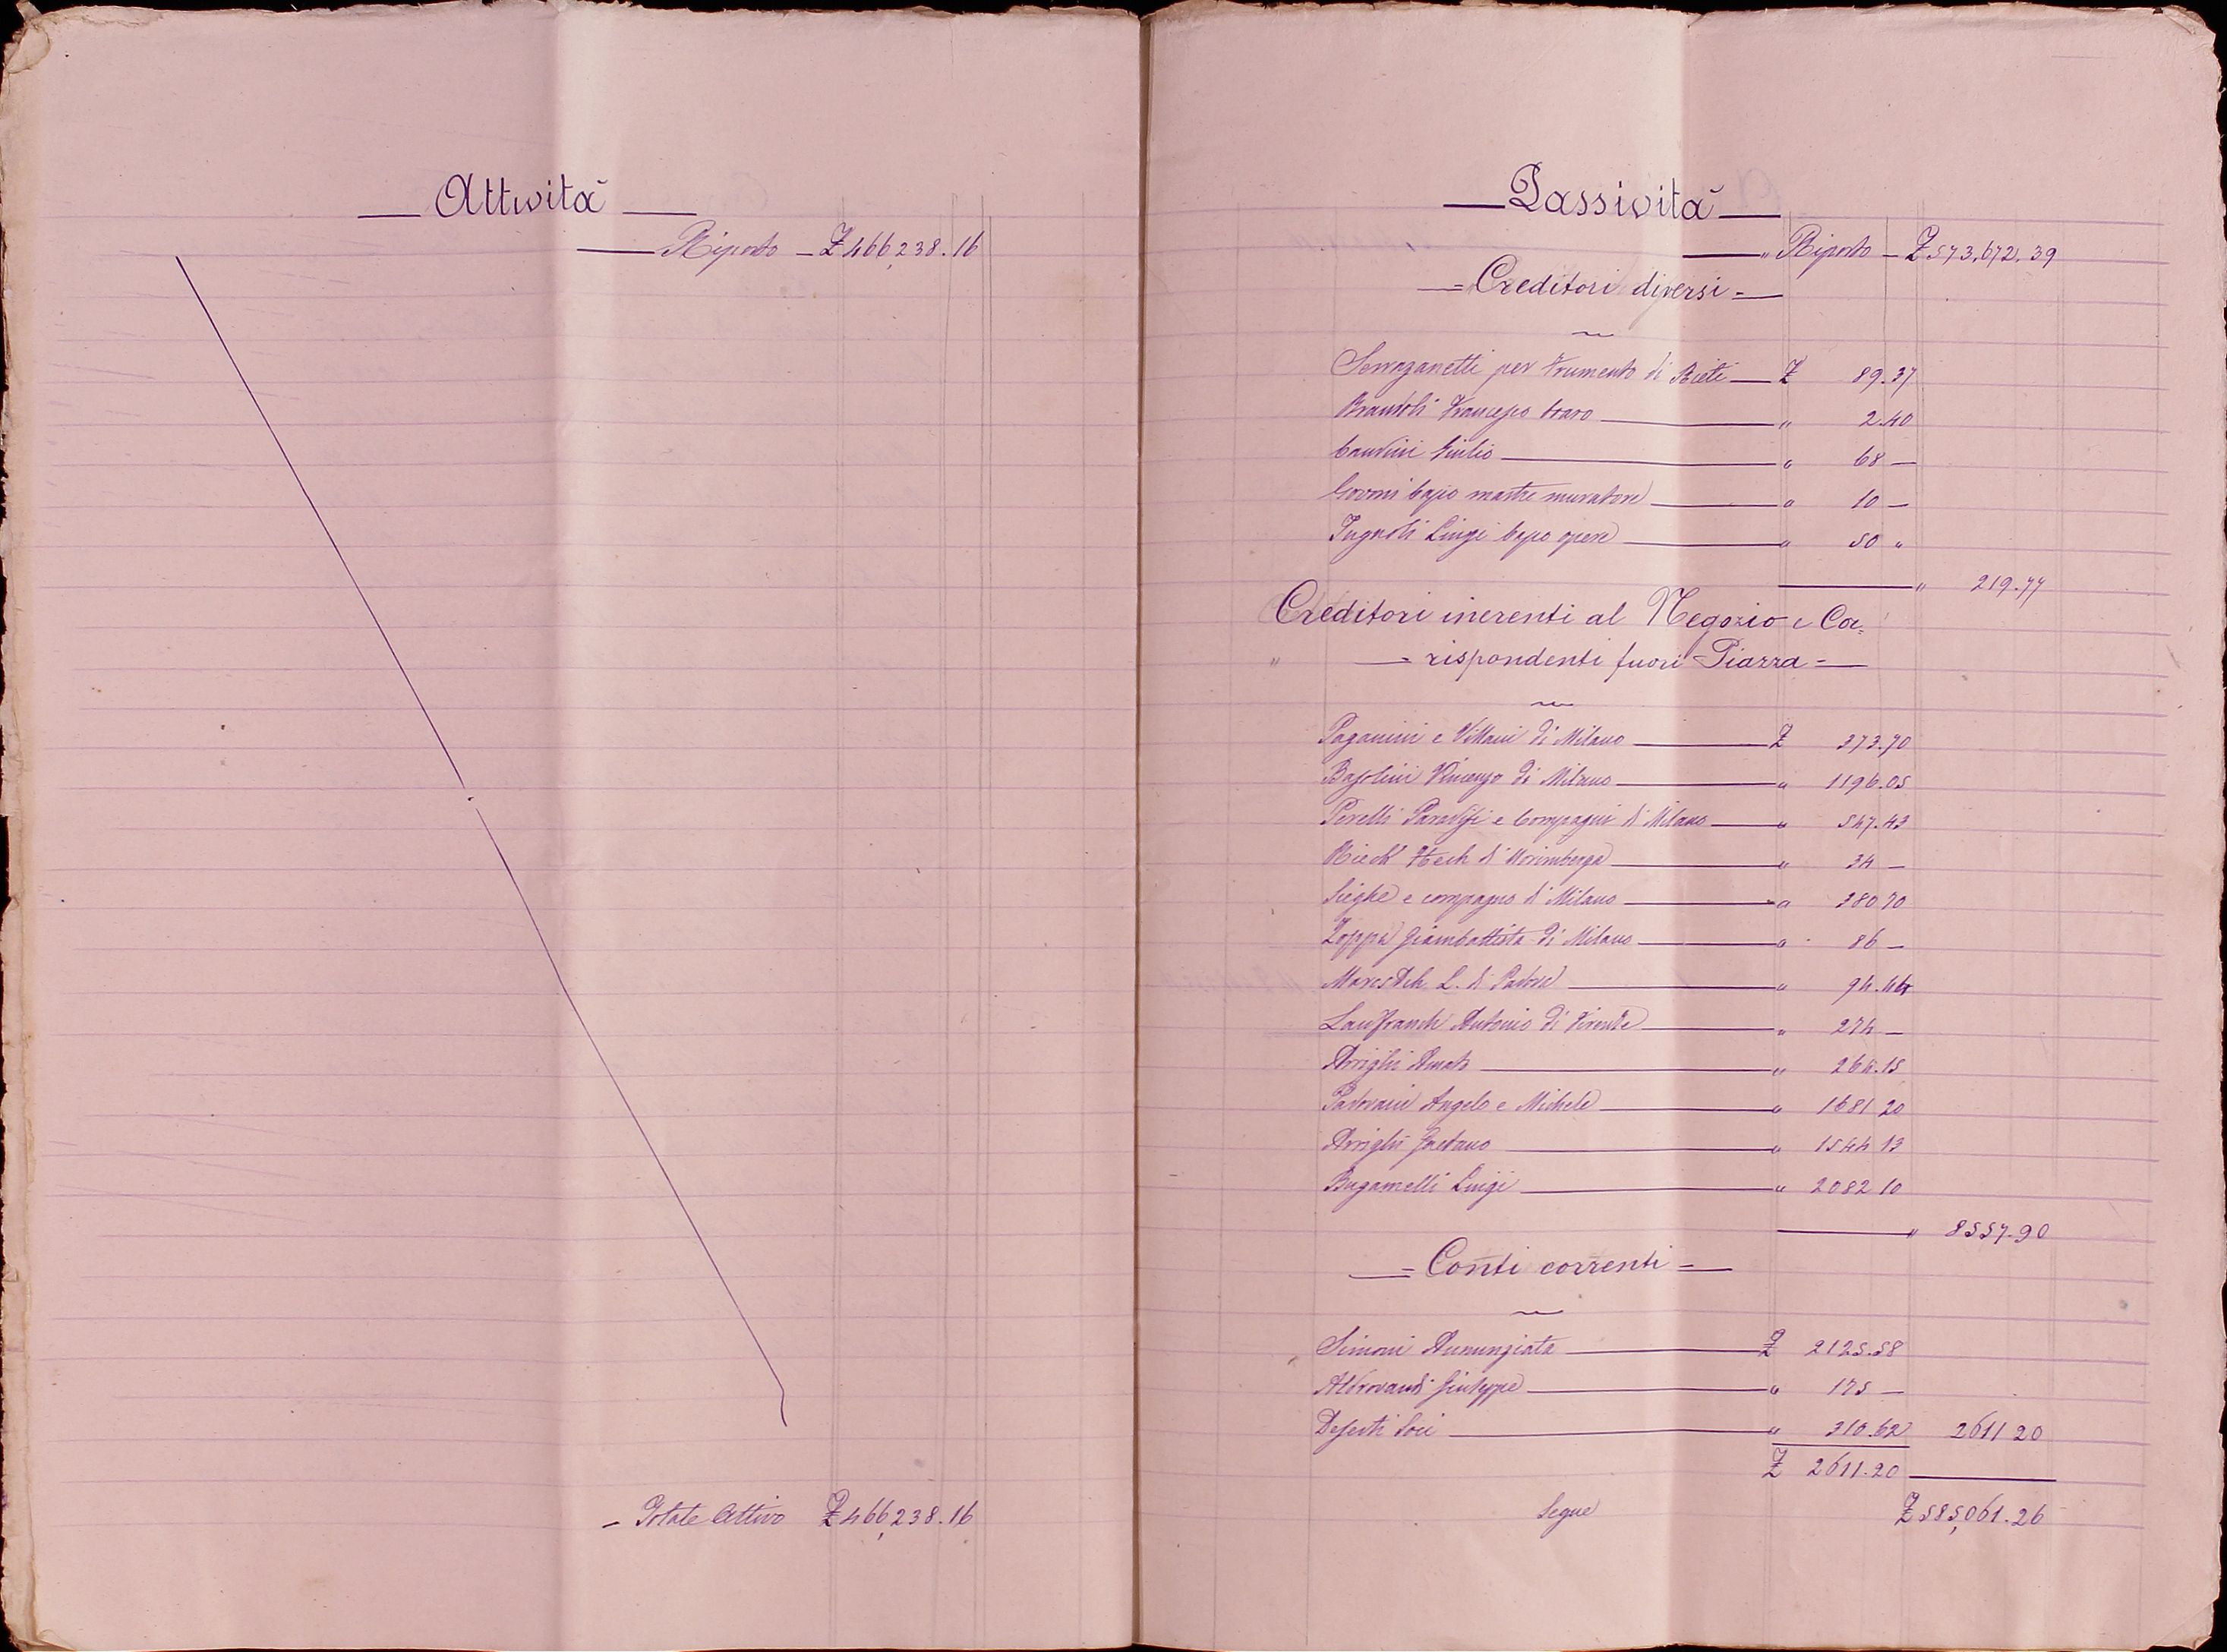 Attività
Riporto £ 466,238.16
Totale Attivo £ 466,238.16
Passività
" Riporto £ 573,672.39
= Creditori diversi =
Serrazanetti per frumento di Rieti £ 89.37
Brandoli Francesco " 2.40
Giulio " 68 —
Govoni Capo mastro muratore " 10 —
Fugnoli Luigi Capo opere " 50 "
" 219.77
Creditori inerenti al Negozio e Cor=
" = rispondenti fuori Piazza =
Paganini e Villani di Milano £ 373.70
Basolini Vincenzo di Milano " 1196.05
Perelli Paradisi e Compagni di Milano " 547.43
di Norimberga " 34 —
e compagno di Milano " 380 70
Zoppa Giambattista di Milano " 86 —
L. di Padova " 94.44
Lanfranchi Antonio di Firenze " 274 —
Arrighi Amato " 264.15
Padovani Angelo e Michele " 1681 20
Arrighi Gaetano " 1544 13
Bugamelli Luigi " 2082 10
" 8557.90
= Conti correnti =
Simoni Annunziata £ 2125.58
Aldrovandi Giuseppe " 175 —
Soci " 310.62 2611 20
£ 2611.20
Segue £ 585,061.26